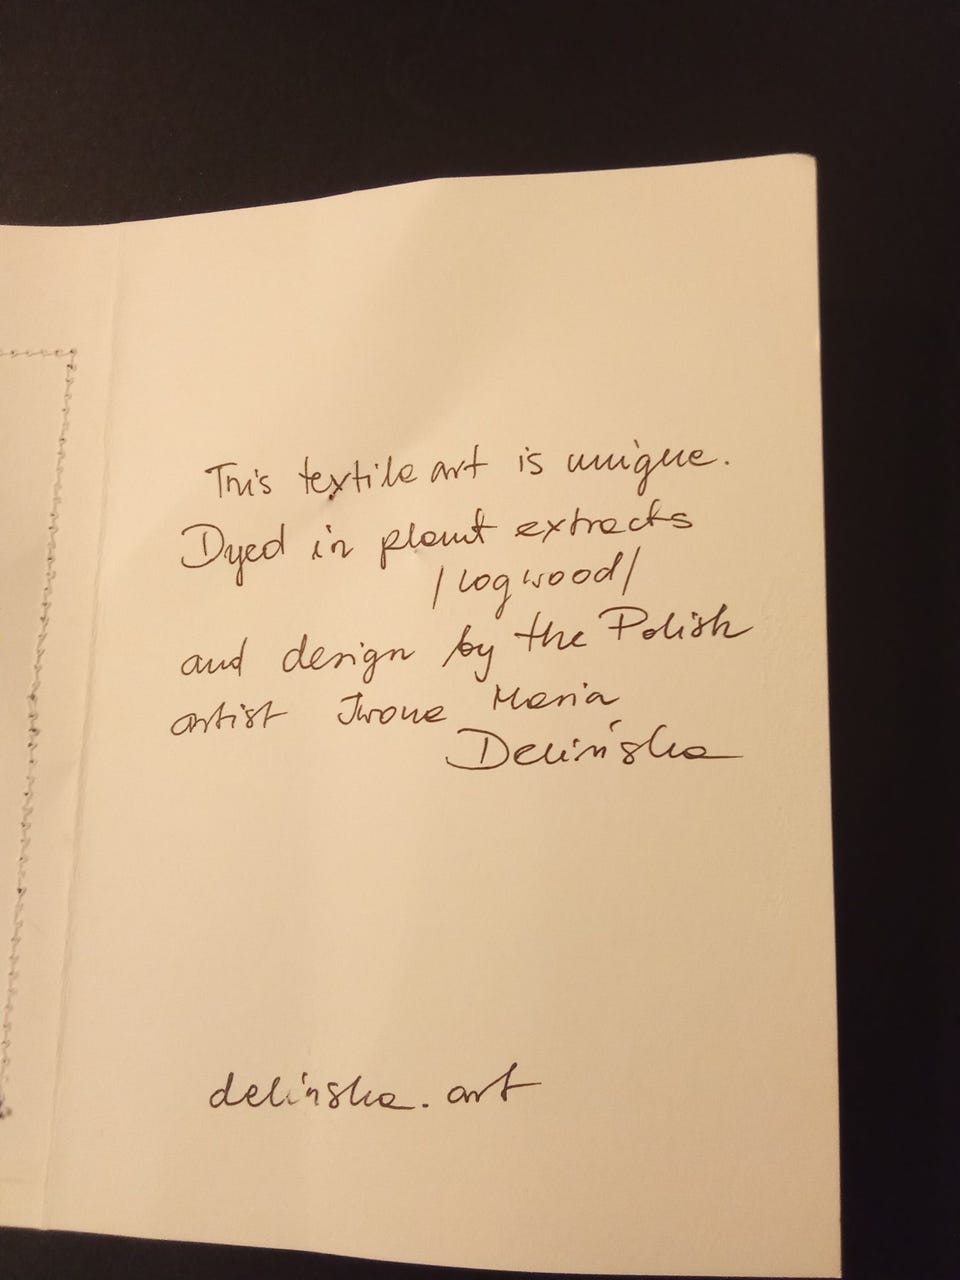 This textile art is unique.
Dyed in plant extracts
/logwood/
and design by the Polish
artist Iwona Maria
Delińska
delinska.art